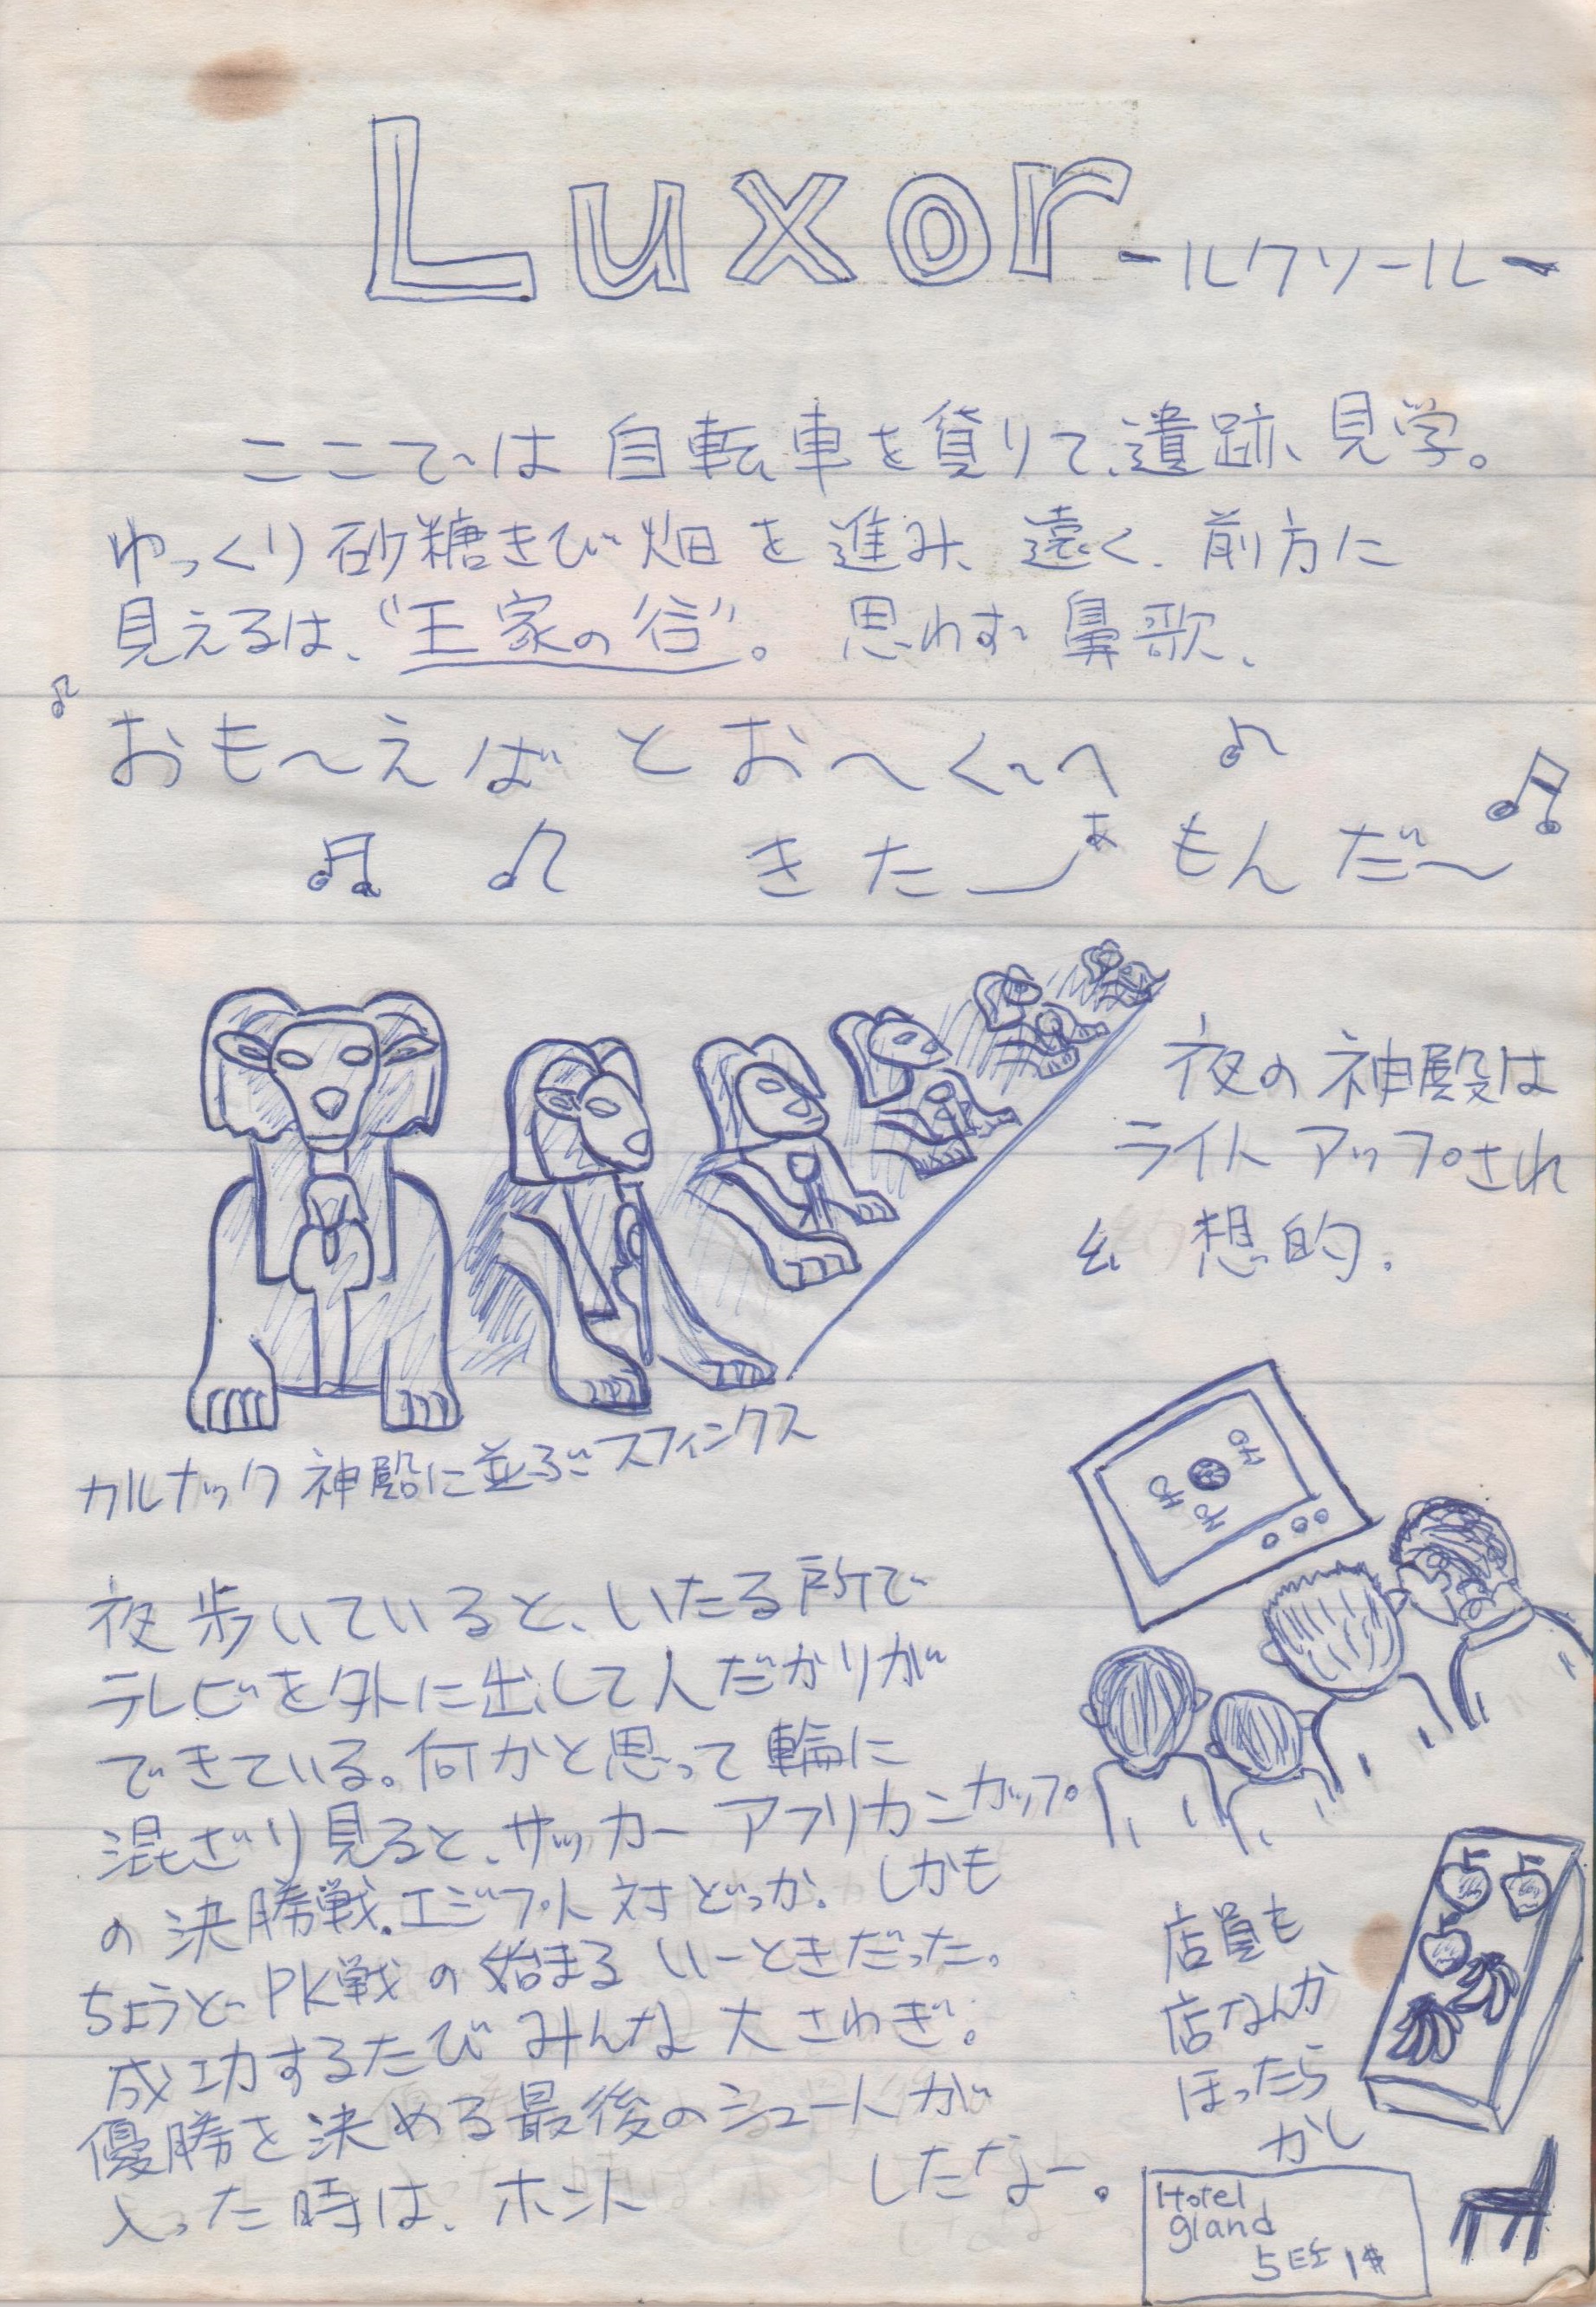 Luxor -ルクソール-
ここでは 自転車を貸りて、遺跡、見学。
ゆっくり砂糖きび畑を進み、遠く、前方に
見えるは、“王家の谷”。 思わず鼻歌、
♪ おも〜えば とお〜く〜へ ♪
♫ ♪ きたーぁ もんだ〜 ♫
夜の神殿は
ライトアップされ
幻想的.
カルナック神殿に並ぶスフィンクス
夜歩いていると、いたる所で
テレビを外に出して人だかりが
できている。何かと思って輪に
混ざり見ると、サッカー アフリカンカップ
の決勝戦。エジプト対どっか、しかも
ちょうどPK戦の始まるいーときだった。
成功するたびみんな大さわぎ。
優勝を決める最後のシュートが
入った時は、ホント したなー。
店員も
店なんか
ほったら
かし
Hotel
gland